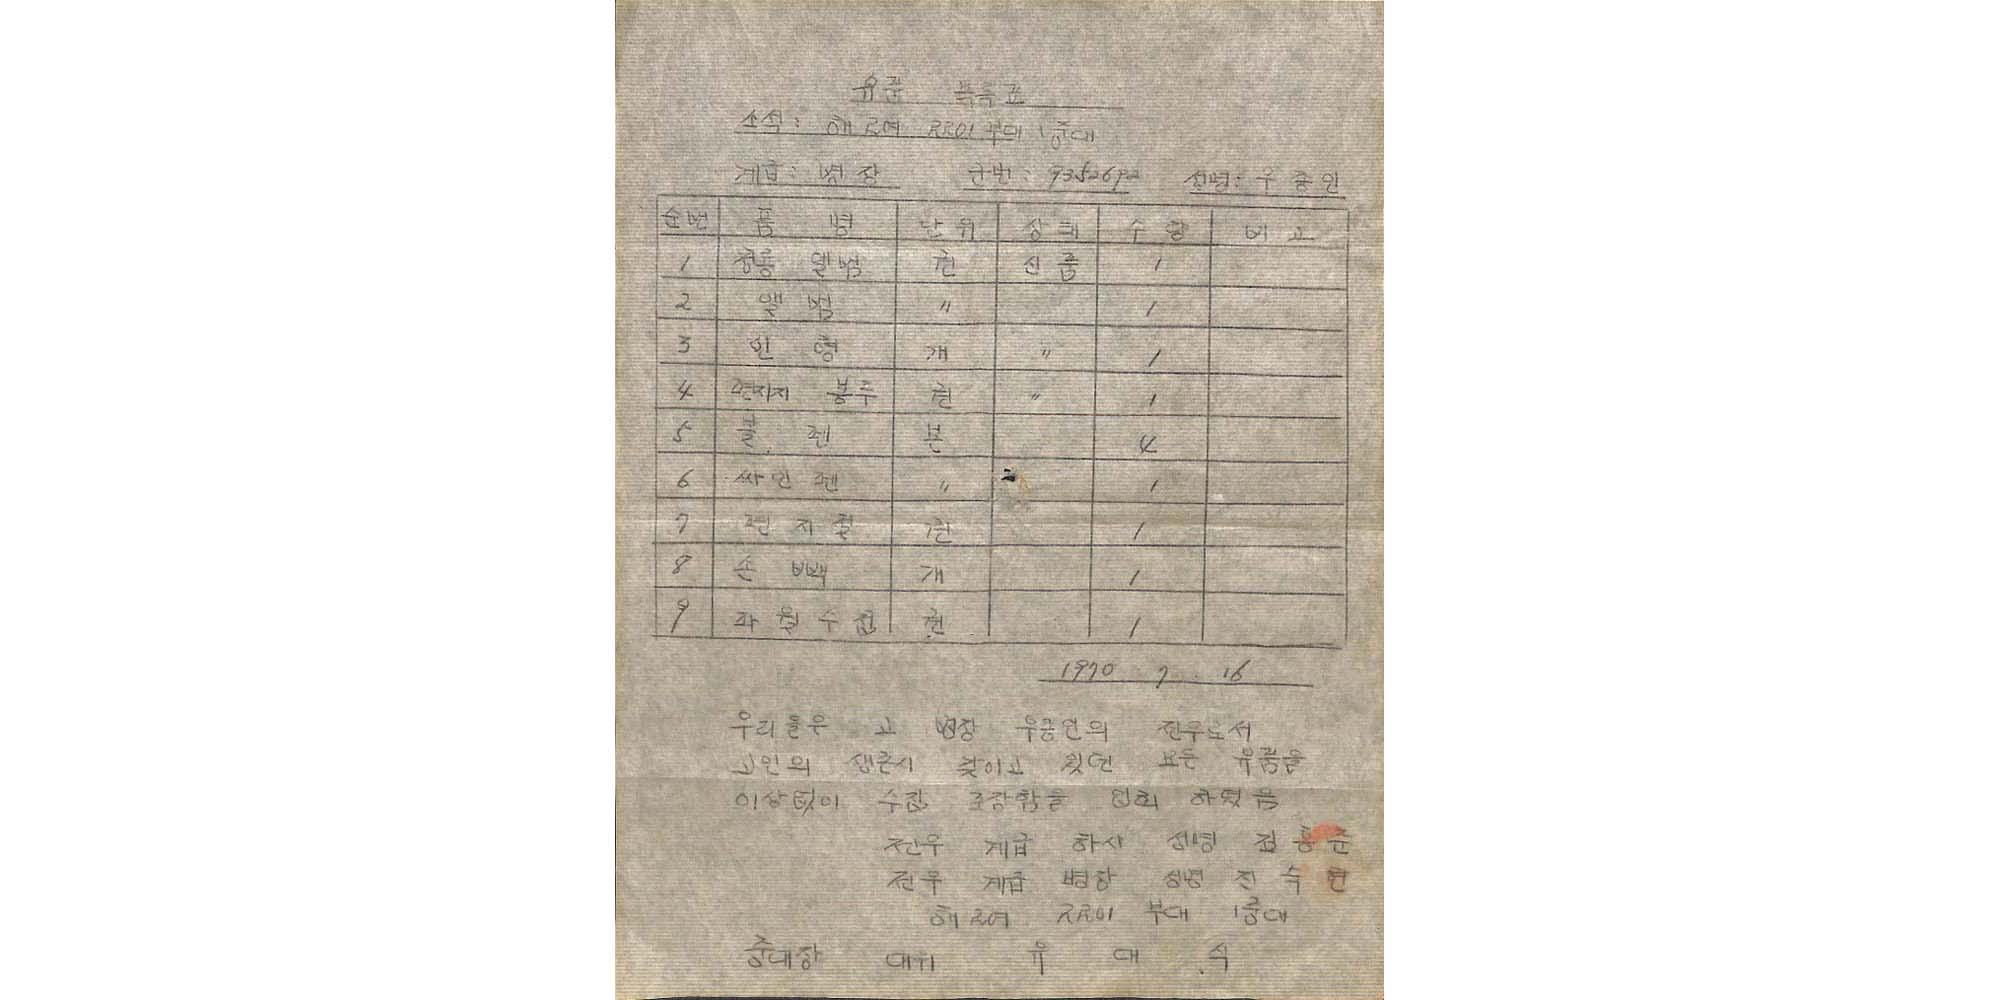 유품 목록표
소속: 해 포여 부대 1중대
계급: 병장 군번: 9352692 성명: 우종인
순번 품 명 단위 상태 수량 비고
1 청룡 앨범 권 신품 1
2 앨범 〃 1
3 인형 개 〃 1
4 편지지 봉투 권 〃 1
5 볼 펜 본 4
6 싸인펜 〃 1
7 편지철 권 1
8 손 빽 개 1
9 과월수첩 권 1
1970 7. 16
우리들은 고 병장 의 전우로서
고인의 생존시 갖이고 있던 모든 유품을
이상없이 수집 포장함을 입회 하였음
전우 계급 하사 성명
전우 계급 병장 성명
해 포여 부대 1중대
중대장 대위 유 대 식